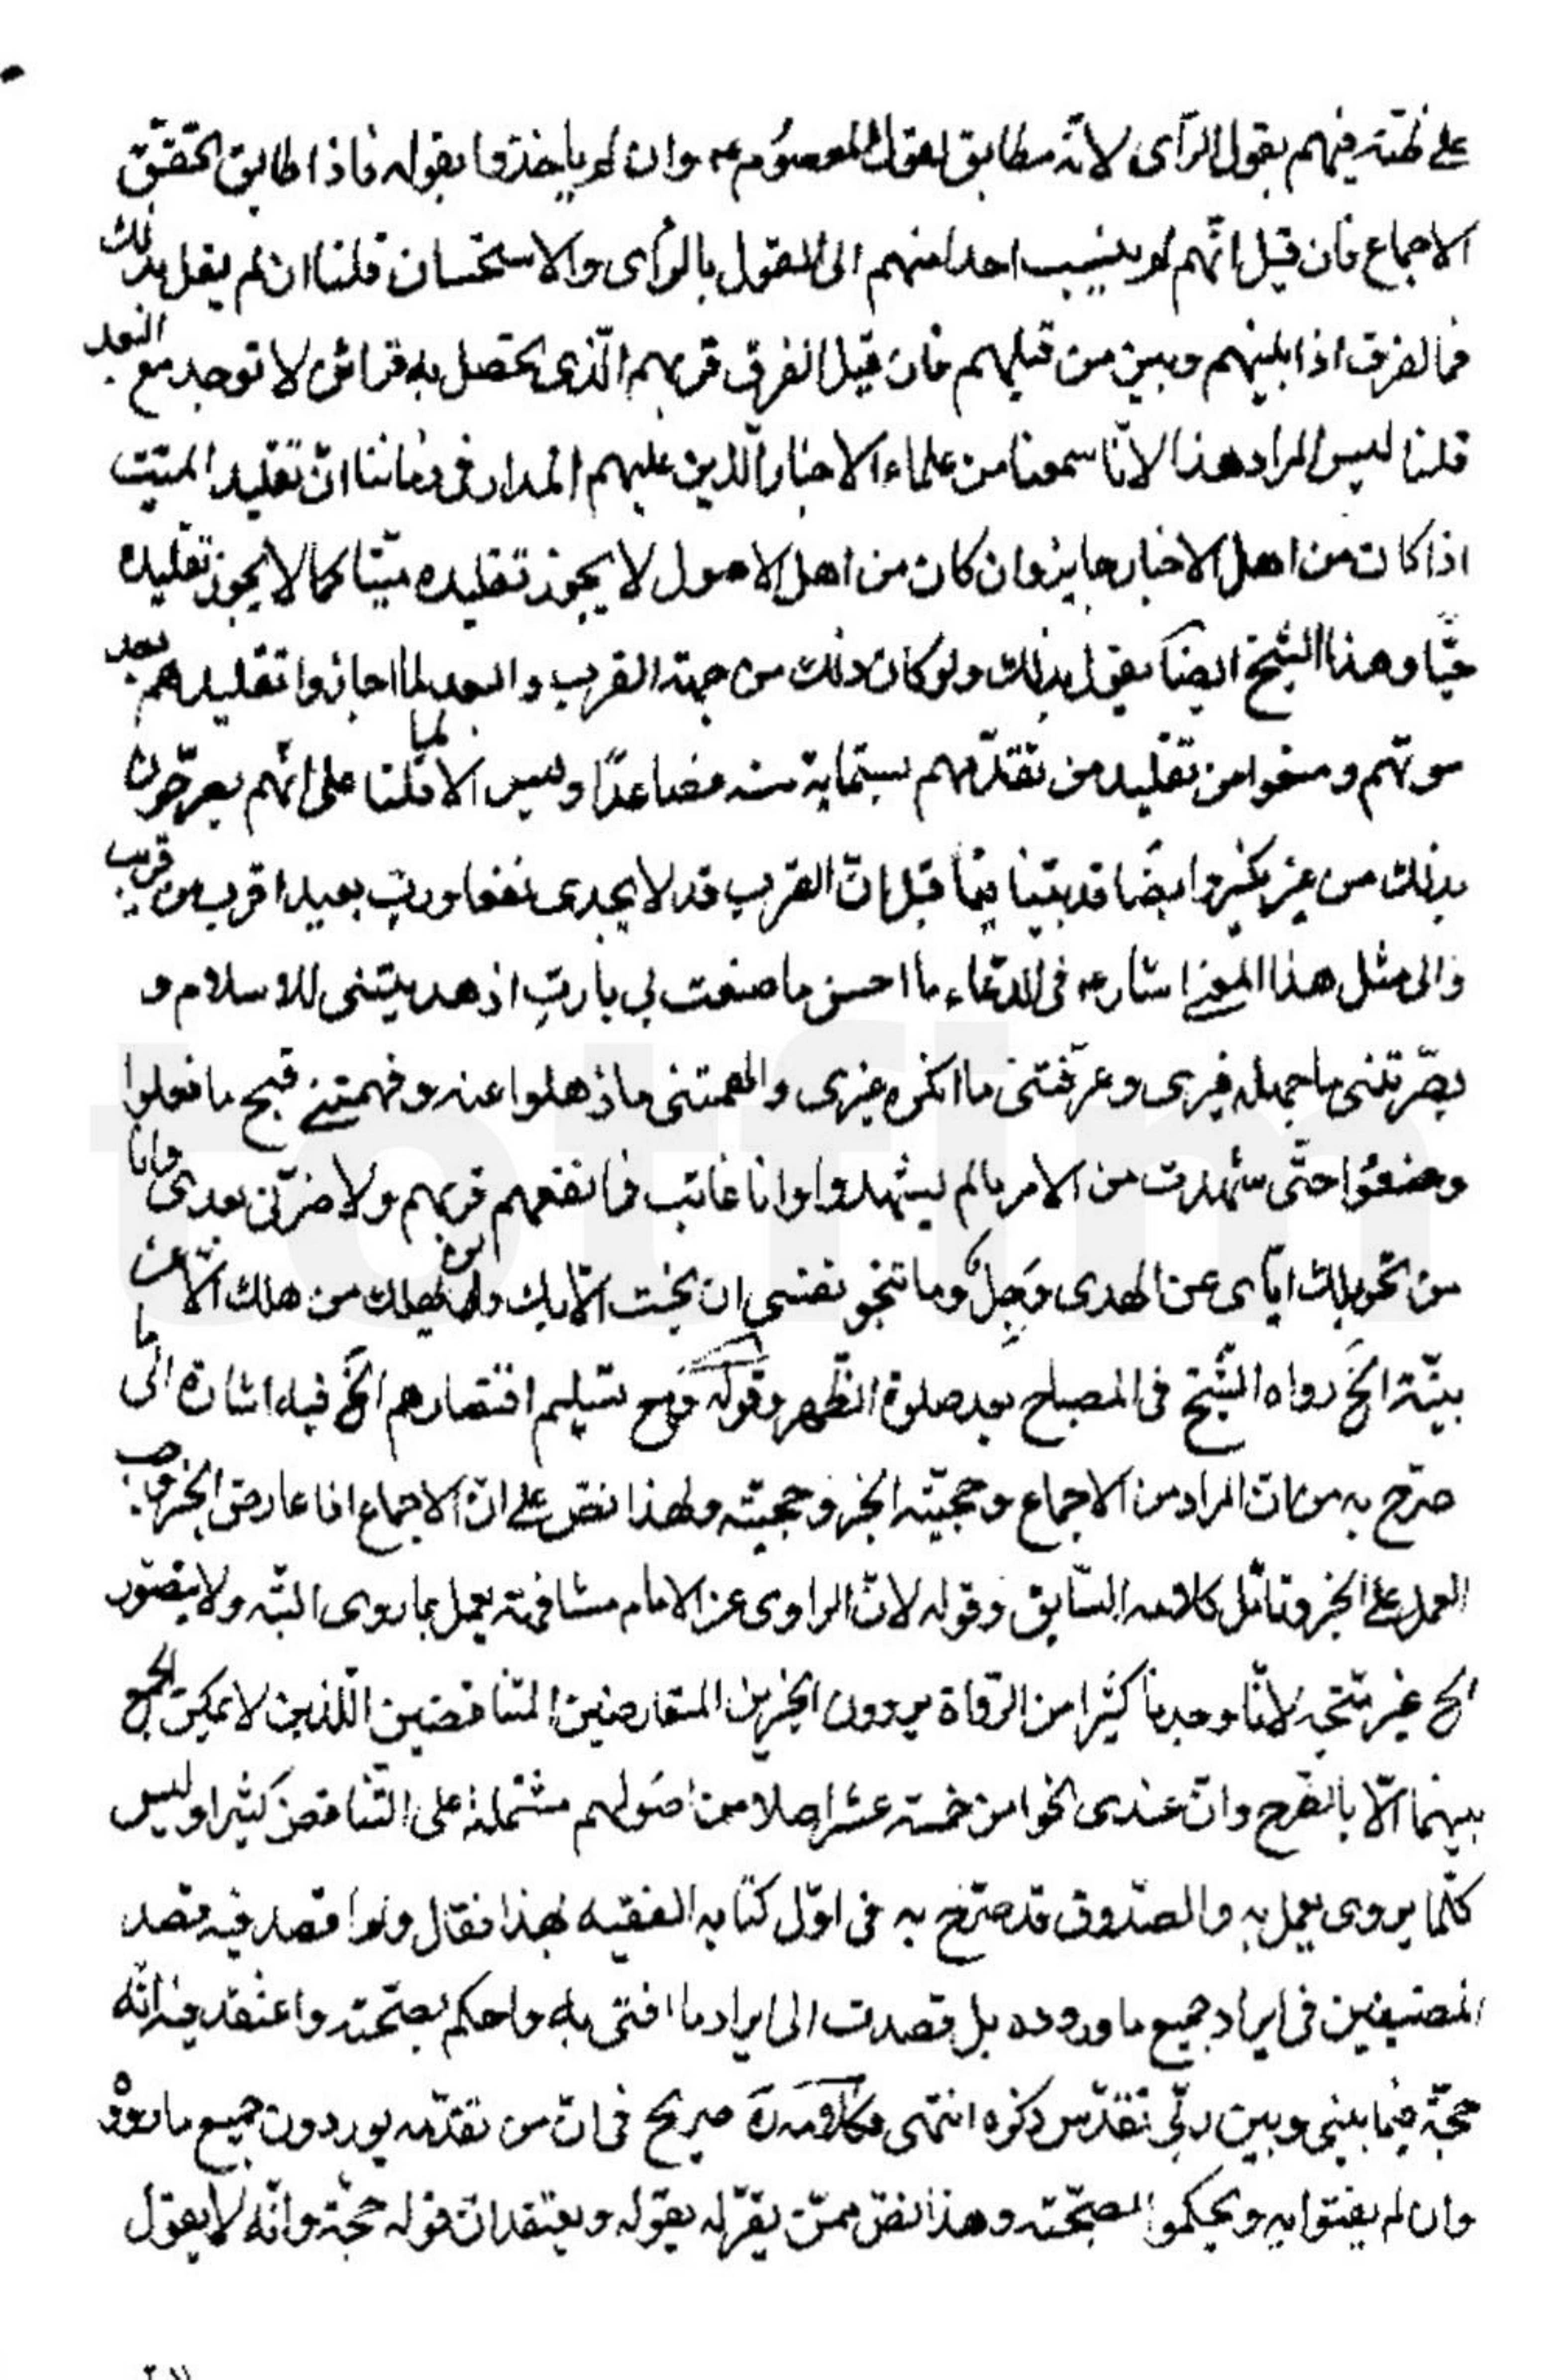 على ظنه فيهم بقول الرآى لانّه مطابق لقول المعصوم ع وان لم ياخذوا بقوله فاذا طابق تحقق
الاجماع فان قيل انّهم لم ينسب احدا منهم الى القول بالرآى والاستحسان قلنا ان لم يقل بذلك
فما الفرق اذا بينهم وبين من قبلهم فان قيل الفرق قربهم الّذى يحصل به قرائن لا توجد مع البعد
قلنا ليس المراد هذا لانّا سمعنا من علماء الاخبار الّذين عليهم المدار فى زماننا انّ تقليد الميّت
اذا كان من اهل الاخبار جايز وان كان من اهل الاصول لا يجوز تقليده ميّتا كما لا يجوز تقليده
حيّا وهذا الشّيخ ايضا يقول بذلك ولو كان ذلك من جهة القرب والبعد لما اجازوا تقليدهم بعد
موتهم ومنعوا من تقليد من تقدّمهم بستماية سنه فصاعدًا وليس الا لما قلنا على انّهم يعرّضون
بذلك من غير نكير وايضا قد بيّنا فيما قبل انّ القرب قد لا يجدى نفعا وربّ بعيد اقرب من قريب
والى مثل هذا المعنى اشار ع فى الدّعاء ما احسن ما صنعت بي يا ربّ اذ هديتنى للاسلام و
بصّرتنى ما جهله غيرى وعرّفتنى ما انكره غيرى والهمتنى ما ذهلوا عنه وفهمتنى قبح ما فعلوا
وصنعوا حتّى شهدت من الامر ما لم يشهدوا وانا غائب فما نفعهم قربهم ولا ضرّنى بعدى وانا
من تحويلك ايّاى عن الهدى وَجِلٌ وما تنجو نفسى ان نجت الّا بك ولن يهلك من هلك الّا عن
بيّنة الخ رواه الشّيخ فى المصباح بعد صلوة الظّهر وقوله ومع تسليم اقتصارهم الخ فيه اشارة الى ما
صرّح به من انّ المراد من الاجماع وحجيّته الخبر وحجيّته ولهذا نصّ على انّ الاجماع اذا عارض الخبر وجب
العمل على الخبر وتامّل كلامه السّابق وقوله لانّ الراوى عن الامام مشافهة يعمل بما روى البتّه ولا يتصوّر
الخ غير متّجه لانّا وجدنا كثيرا من الرّواة يروون الخبرين المتعارضين المتناقضين اللّذين لا يمكن الجمع
بينهما الّا بالطّرح وانّ عندى نحوا من خمسة عشر اصلا من اصولهم مشتملة على التّناقض كثيرا وليس
كلّما يروى يعمل به والصّدوق قد صرّح به فى اوّل كتابه الفقيه بهذا فقال ولم اقصد فيه قصد
المصنّفين فى ايراد جميع ما رووه بل قصدت الى ايراد ما افتى به واحكم بصحّته واعتقد فيه انّه
حجّة فيما بينى وبين ربّي تقدّس ذكره انتهى وكلامه ره صريح فى انّ من تقدّمه يوردون جميع ما رووه
وان لم يفتوا به ويحكموا بصحّته وهذا نصّ ممّن يقرّ له بقوله ويعتقد انّ قوله حجّة وانّه لا يقول